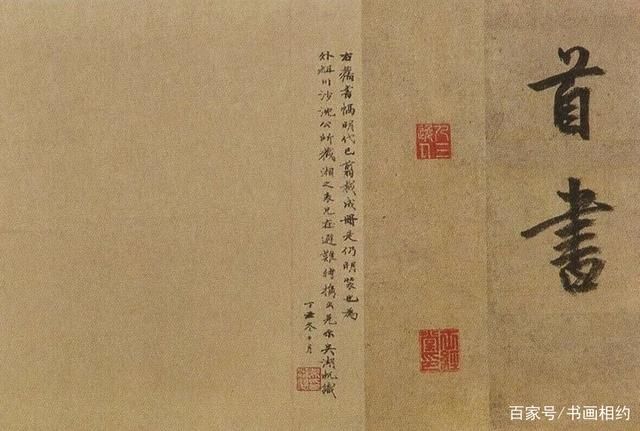 首書
右舊書幅明代已翦裁成冊是仍明裝也為
外祖川沙沈公所藏湘之表兄在避難時攜出見示吳湖帆識
丁丑冬十月
百家号/书画相约